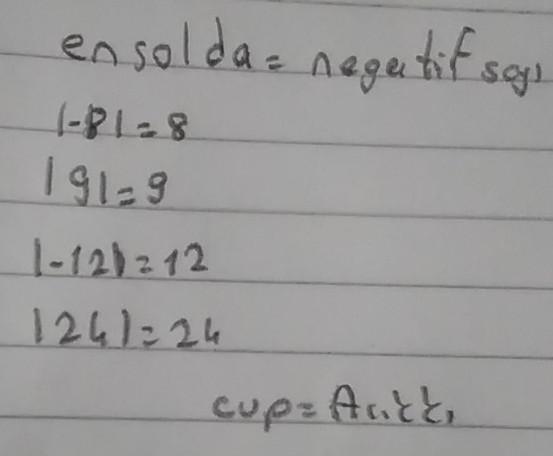 en solda = negatif sayı
|-8| = 8
|9| = 9
|-12| = 12
|24| = 24
cvp =